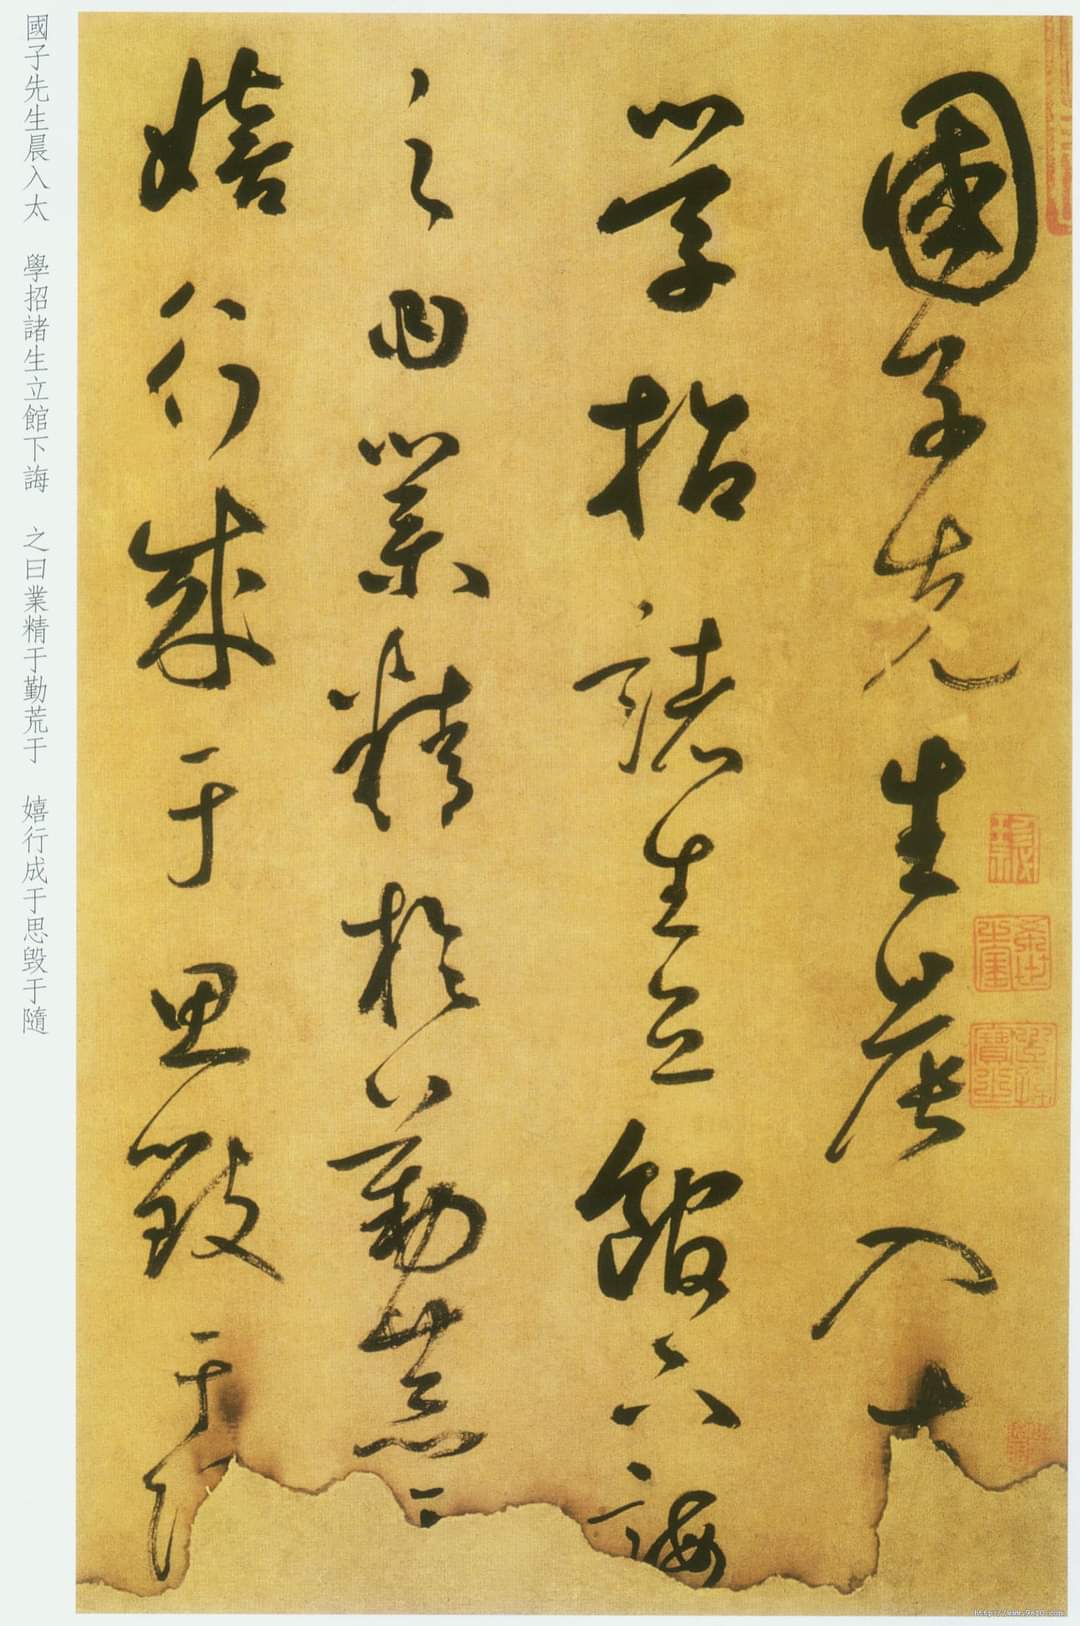 國子先生晨入太
學招諸生立館下誨
之曰業精於勤荒于
嬉行成于思毀于
國子先生晨入太 學招諸生立館下誨 之曰業精于勤荒于 嬉行成于思毀于隨
http://www.9610.com